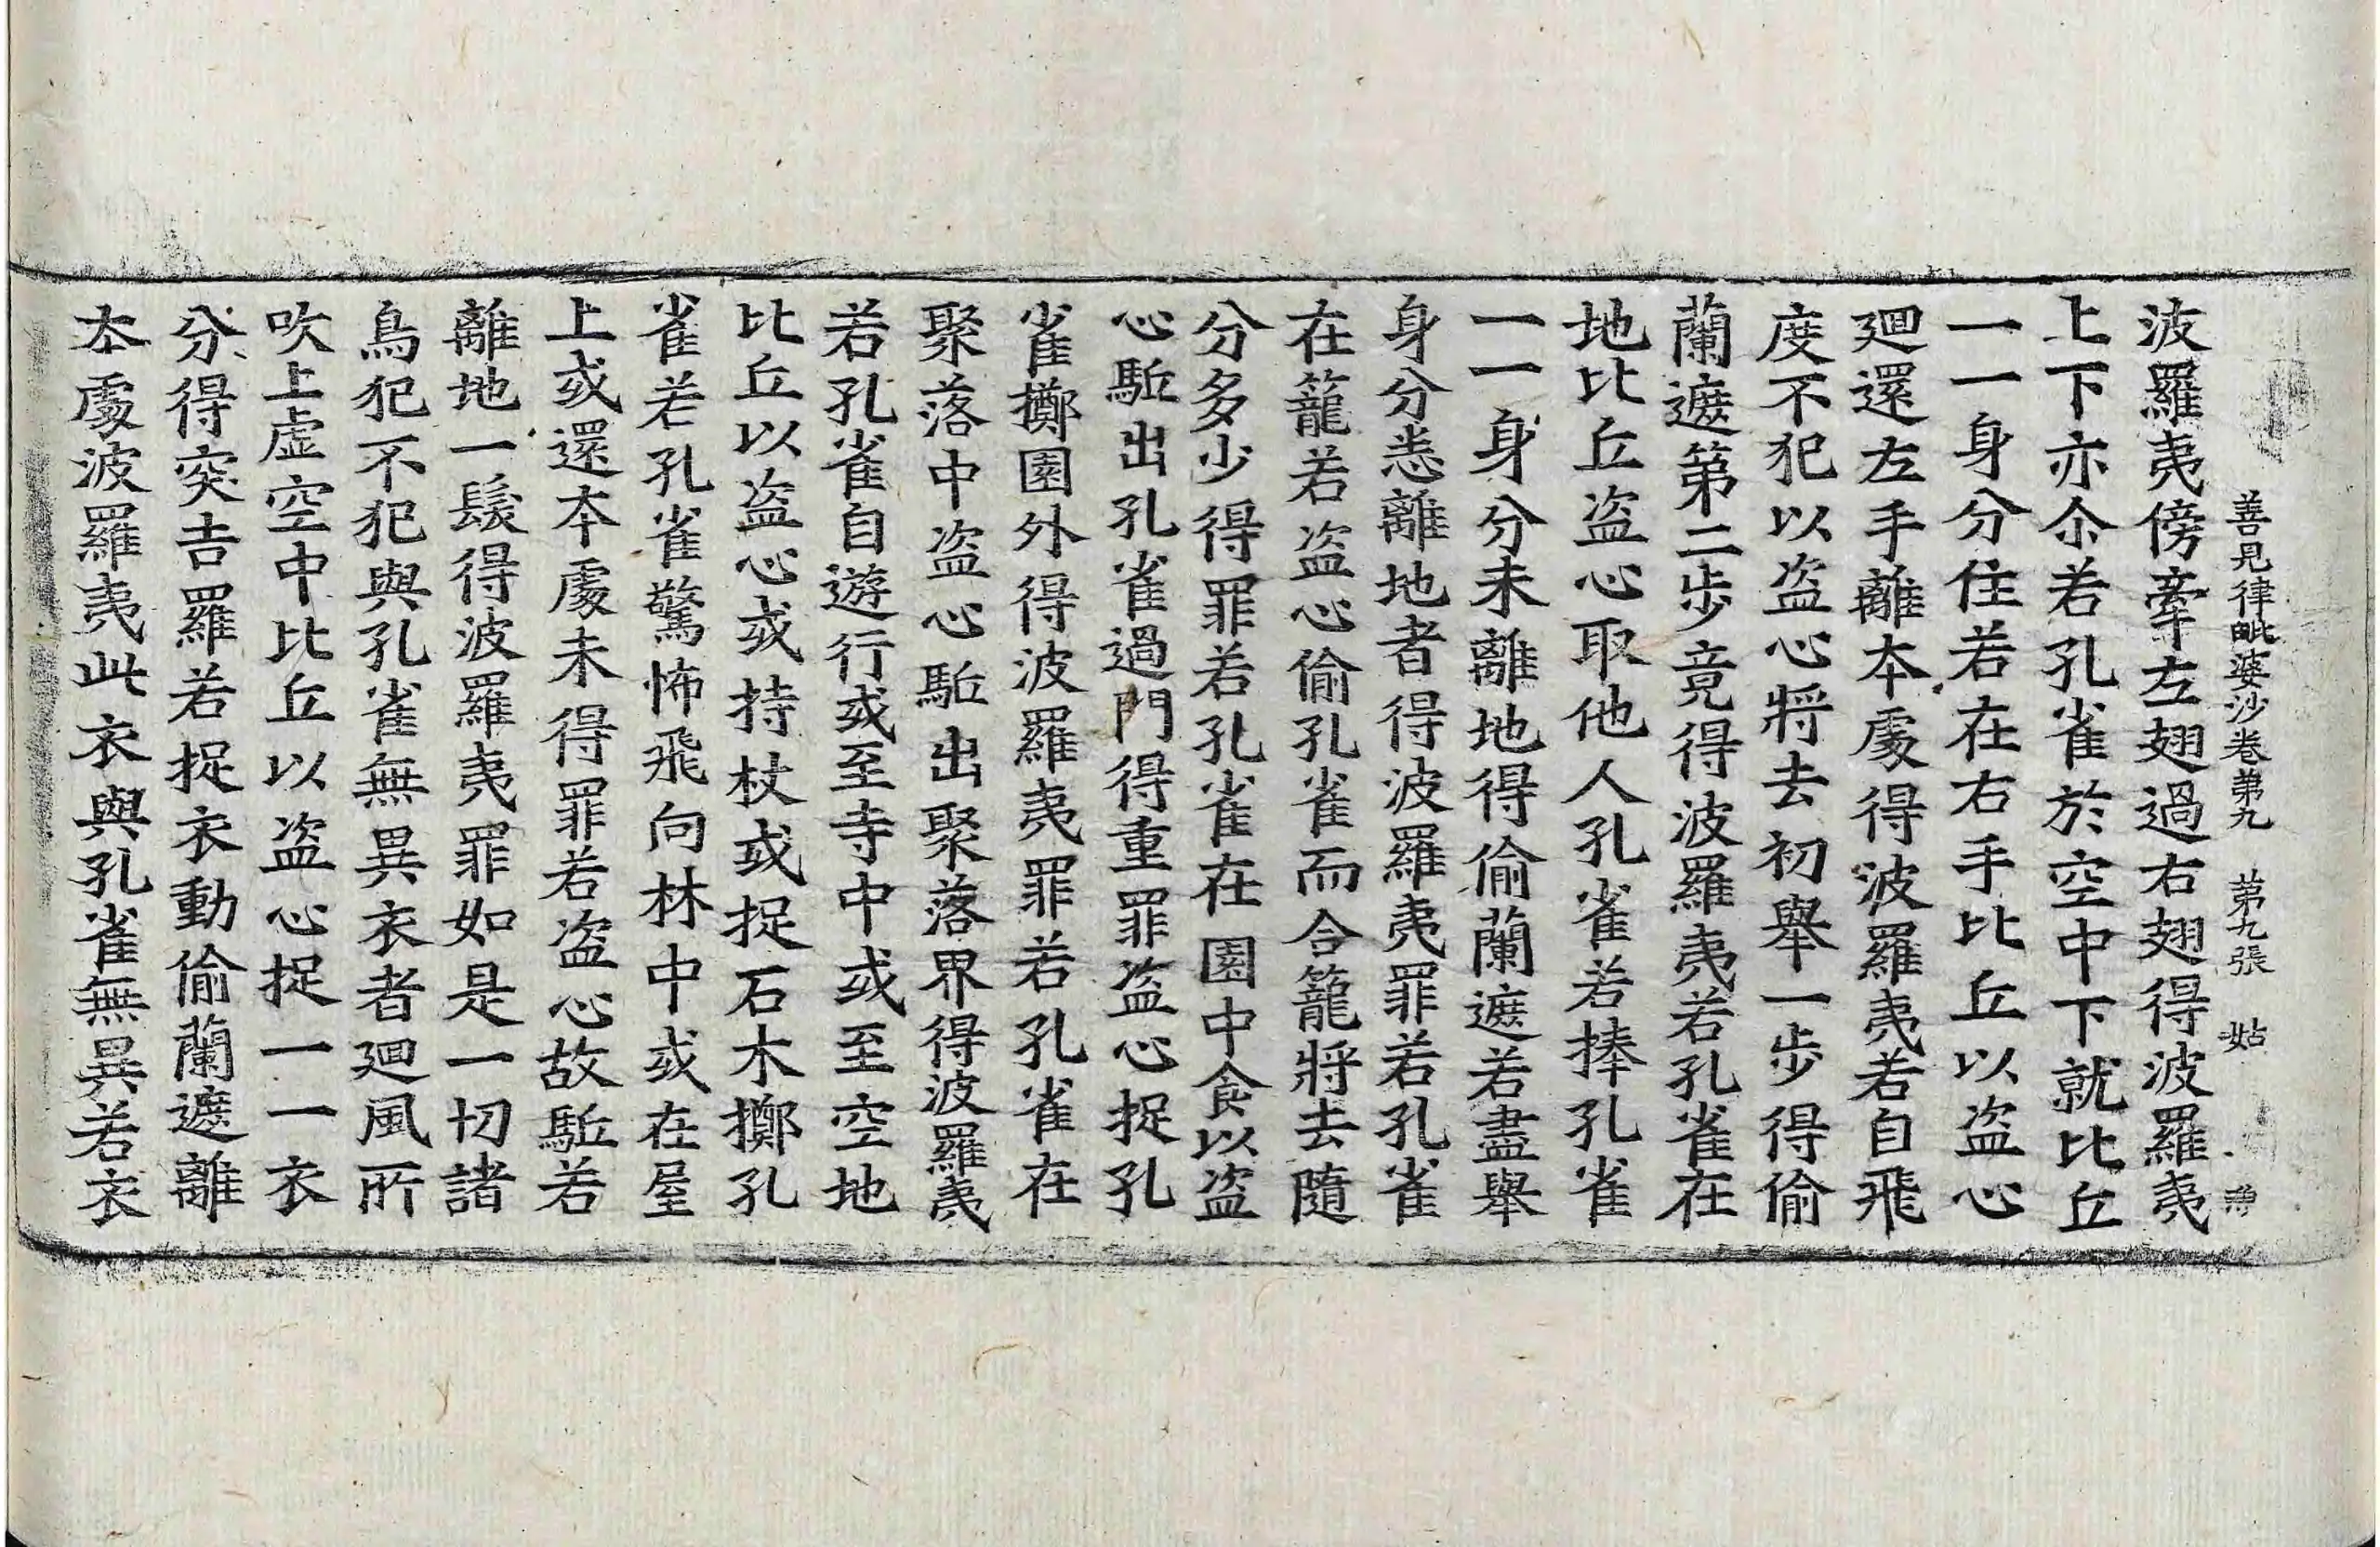 善見律毗婆沙卷第九　第九張　姑
波羅夷傍牽左翅過右翅得波羅夷
上下亦尒若孔雀於空中下就比丘
一一身分住若在右手比丘以盜心
迴還左手離本處得波羅夷若自飛
度不犯以盜心將去初舉一步得偷
蘭遮第二步竟得波羅夷若孔雀在
地比丘盜心取他人孔雀若捧孔雀
一一身分未離地得偷蘭遮若盡舉
身分悉離地者得波羅夷罪若孔雀
在籠若盜心偷孔雀而合籠將去隨
分多少得罪若孔雀在園中食以盜
心駈出孔雀過門得重罪盜心捉孔
雀擲園外得波羅夷罪若孔雀在
聚落中盜心駈出聚落界得波羅夷
若孔雀自遊行或至寺中或至空地
比丘以盜心或持杖或捉石木擲孔
雀若孔雀驚怖飛向林中或在屋
上或還本處未得罪若盜心故駈若
離地一髮得波羅夷罪如是一切諸
鳥犯不犯與孔雀無異衣者迴風所
吹上虛空中比丘以盜心捉一一衣
分得突吉羅若捉衣動偷蘭遮離
本處波羅夷此衣與孔雀無異若衣